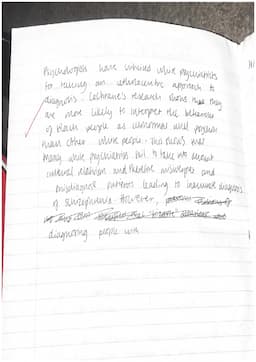 Psychologists have criticised white psychiatrists
for taking an ethnocentric approach to
diagnosis. Cochrane's research shows that they
are more likely to interpret the behaviour
of black people as abnormal
than other white people. This means that
many white psychiatrists fail to take into account
cultural relativism and therefore misinterpret and
misdiagnose patients leading to inaccurate diagnosis
of schizophrenia. However,
diagnosing people with